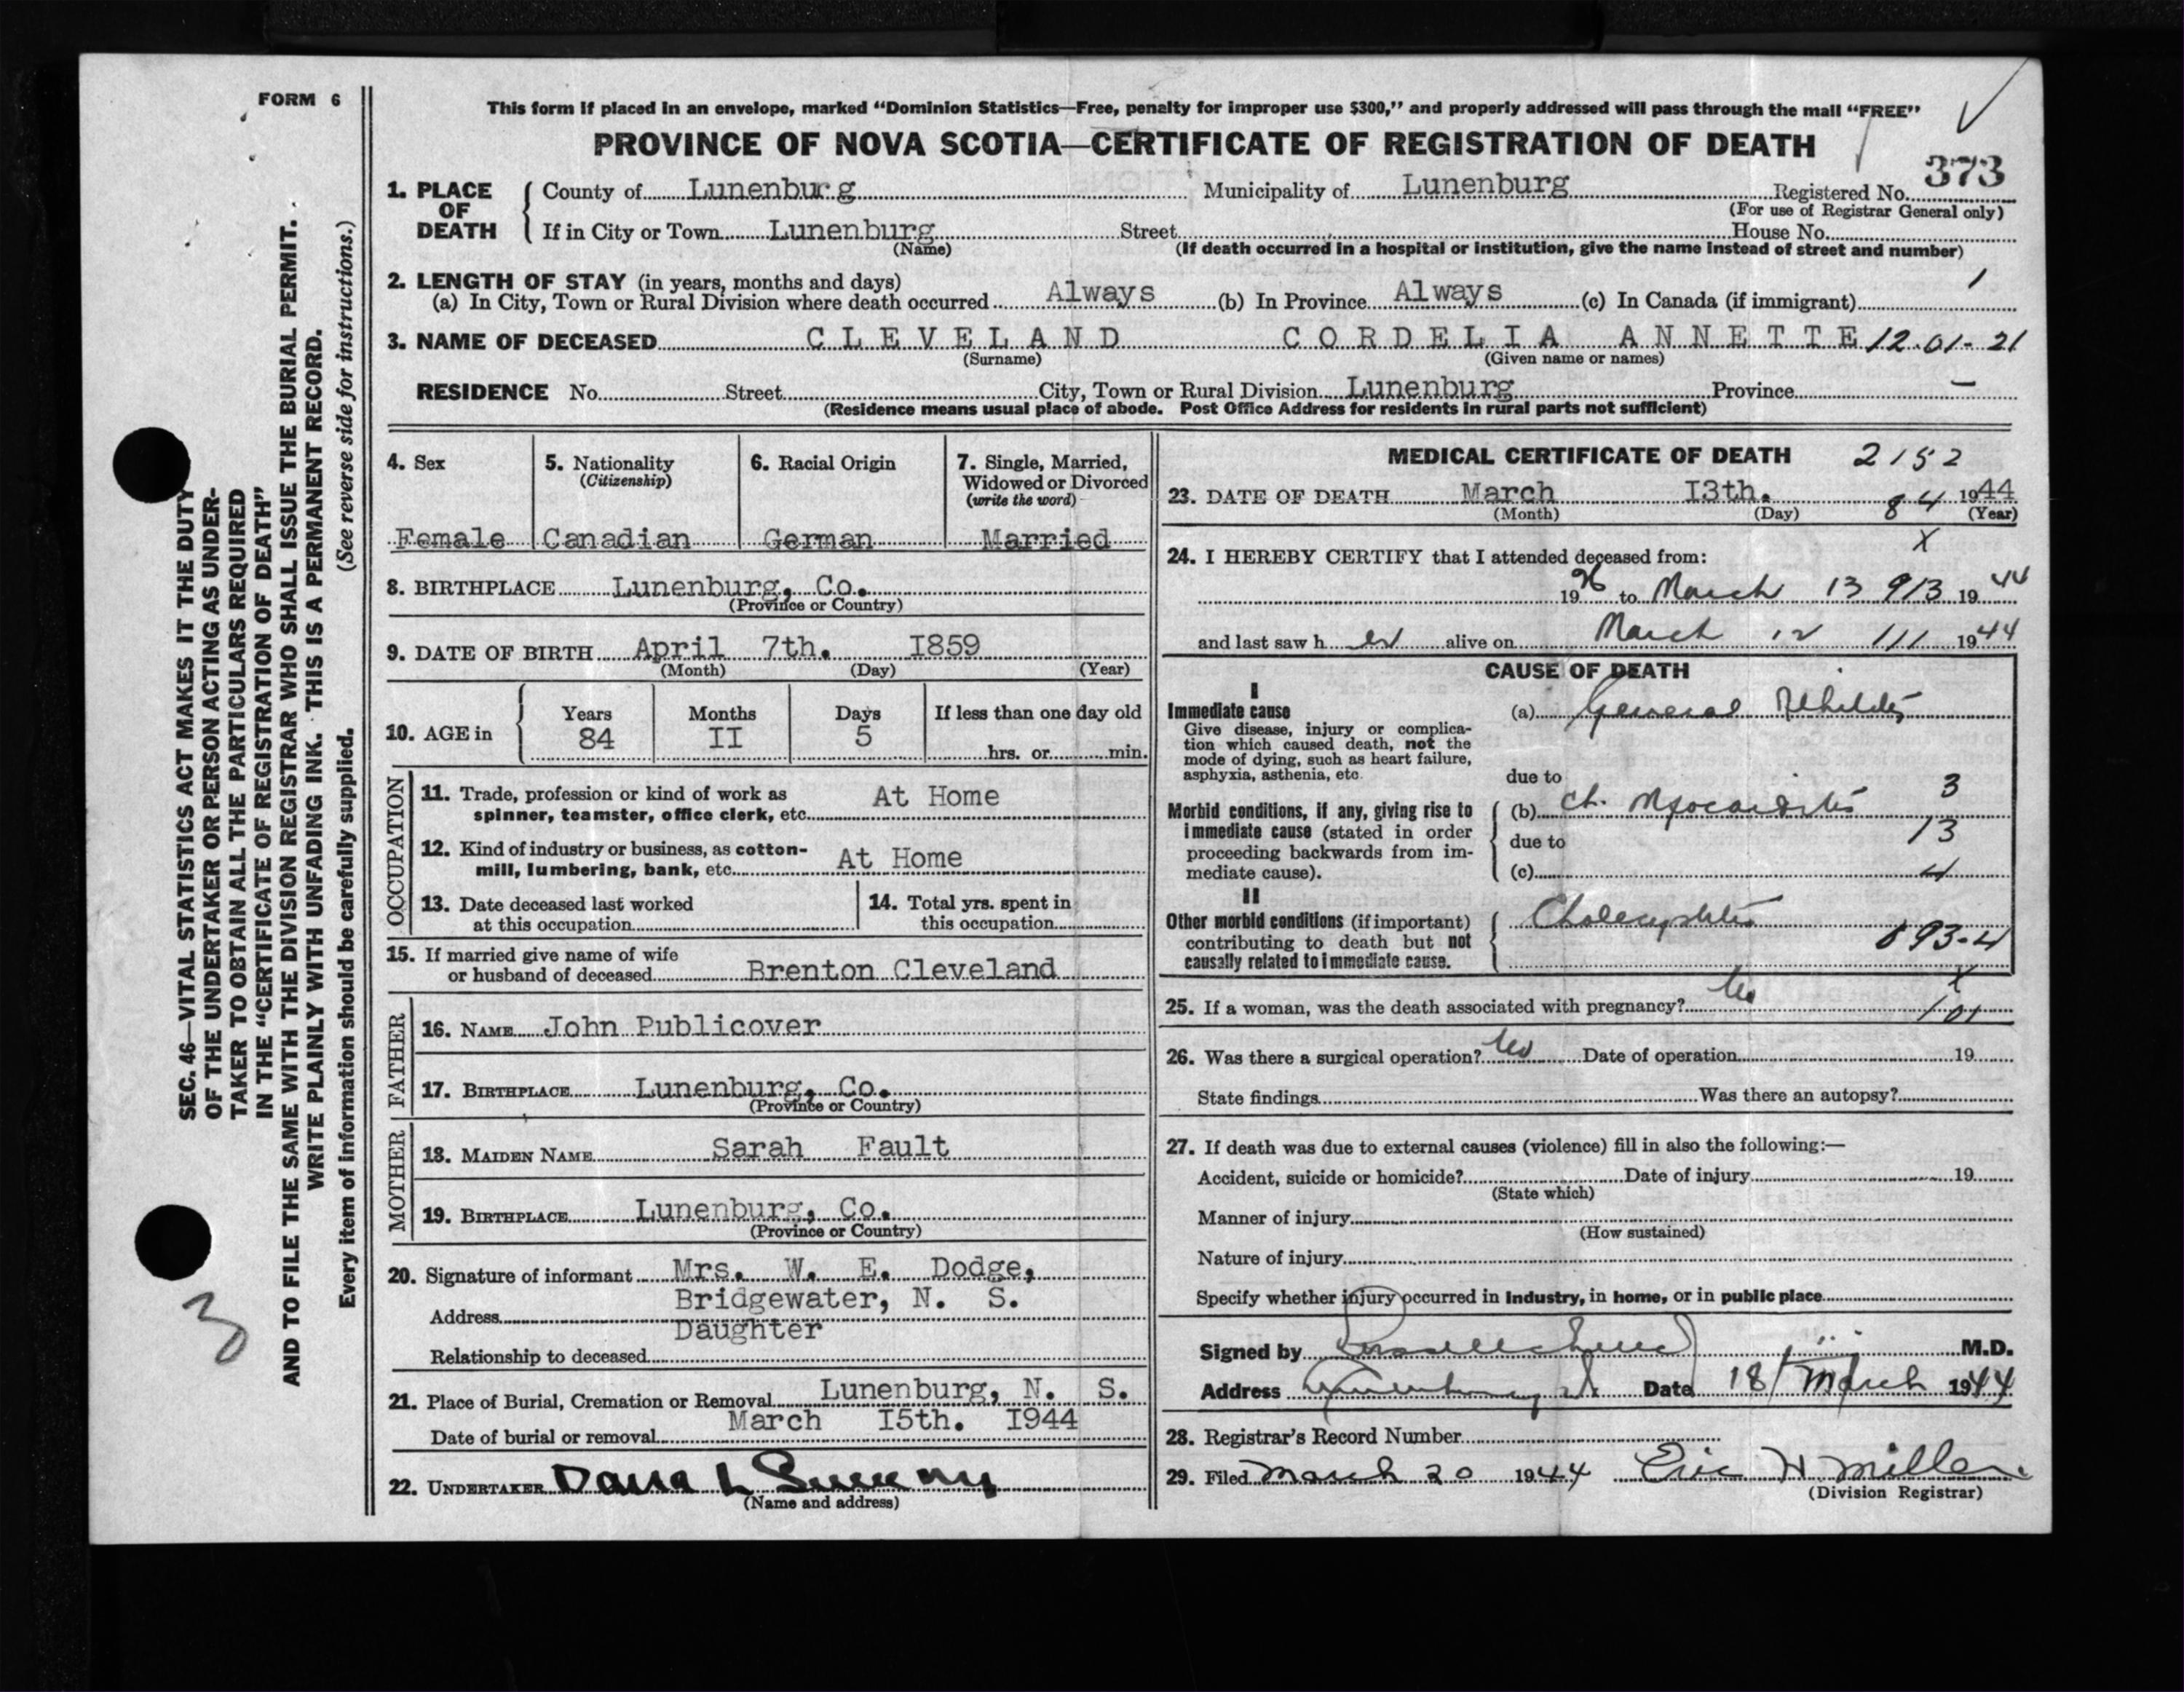 FORM 6
This form if placed in an envelope, marked “Dominion Statistics—Free, penalty for improper use $300,” and properly addressed will pass through the mail “FREE”
PROVINCE OF NOVA SCOTIA—CERTIFICATE OF REGISTRATION OF DEATH
373
1. PLACE OF DEATH
County of Lunenburg Municipality of Lunenburg Registered No.
(For use of Registrar General only)
If in City or Town Lunenburg Street House No.
(Name) (If death occurred in a hospital or institution, give the name instead of street and number)
2. LENGTH OF STAY (in years, months and days)
(a) In City, Town or Rural Division where death occurred Always (b) In Province Always (c) In Canada (if immigrant) 1
3. NAME OF DECEASED CLEVELAND CORDELIA ANNETTE 12.01-21
(Surname) (Given name or names)
RESIDENCE No. Street City, Town or Rural Division Lunenburg Province —
(Residence means usual place of abode. Post Office Address for residents in rural parts not sufficient)
4. Sex
Female
5. Nationality
(Citizenship)
Canadian
6. Racial Origin
German
7. Single, Married,
Widowed or Divorced
(write the word)
Married
8. BIRTHPLACE Lunenburg, Co.
(Province or Country)
9. DATE OF BIRTH April 7th. I859
(Month) (Day) (Year)
10. AGE in
Years Months Days If less than one day old
84 II 5 hrs. or min.
OCCUPATION
11. Trade, profession or kind of work as
spinner, teamster, office clerk, etc. At Home
12. Kind of industry or business, as cotton-
mill, lumbering, bank, etc. At Home
13. Date deceased last worked
at this occupation
14. Total yrs. spent in
this occupation
15. If married give name of wife
or husband of deceased Brenton Cleveland
FATHER
16. NAME John Publicover
17. BIRTHPLACE Lunenburg, Co.
(Province or Country)
MOTHER
18. MAIDEN NAME Sarah Fault
19. BIRTHPLACE Lunenburg, Co.
(Province or Country)
20. Signature of informant Mrs. W. E. Dodge,
Address Bridgewater, N. S.
Relationship to deceased Daughter
21. Place of Burial, Cremation or Removal Lunenburg, N. S.
Date of burial or removal March I5th. I944
22. UNDERTAKER L
(Name and address)
MEDICAL CERTIFICATE OF DEATH 2152
23. DATE OF DEATH March I3th. 84 1944
(Month) (Day) (Year)
X
24. I HEREBY CERTIFY that I attended deceased from:
19 to March 13 913 1944
and last saw her alive on March 12 111 1944
CAUSE OF DEATH
I
Immediate cause
Give disease, injury or complica-
tion which caused death, not the
mode of dying, such as heart failure,
asphyxia, asthenia, etc.
(a) General Debility
due to
Morbid conditions, if any, giving rise to
immediate cause (stated in order
proceeding backwards from im-
mediate cause).
(b) Ch. Myocarditis 3
due to 13
(c) 4
II
Other morbid conditions (if important)
contributing to death but not
causally related to immediate cause.
Cholecystitis
93-4
X
25. If a woman, was the death associated with pregnancy? No 101
26. Was there a surgical operation? No Date of operation 19
State findings Was there an autopsy?
27. If death was due to external causes (violence) fill in also the following:—
Accident, suicide or homicide? Date of injury 19
(State which)
Manner of injury
(How sustained)
Nature of injury
Specify whether injury occurred in industry, in home, or in public place
Signed by M.D.
Address Date 18 March 1944
28. Registrar’s Record Number
29. Filed March 20 1944 Eric H Miller
(Division Registrar)
SEC. 46—VITAL STATISTICS ACT MAKES IT THE DUTY
OF THE UNDERTAKER OR PERSON ACTING AS UNDER-
TAKER TO OBTAIN ALL THE PARTICULARS REQUIRED
IN THE “CERTIFICATE OF REGISTRATION OF DEATH”
AND TO FILE THE SAME WITH THE DIVISION REGISTRAR WHO SHALL ISSUE THE BURIAL PERMIT.
WRITE PLAINLY WITH UNFADING INK. THIS IS A PERMANENT RECORD.
Every item of information should be carefully supplied. (See reverse side for instructions.)
3